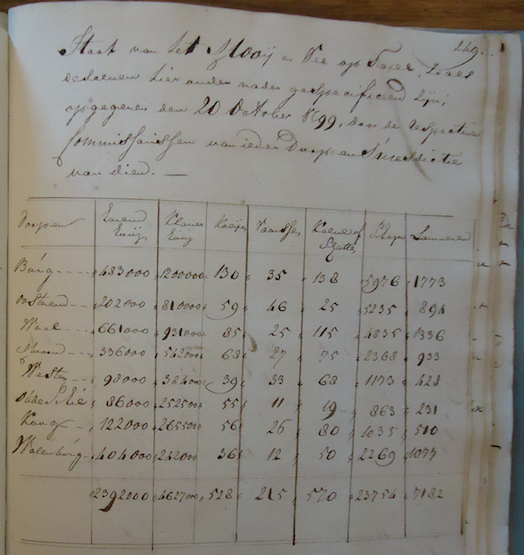 249.
Staat van het Hooij en Vee op Texel, zoals
dezelven hier onder nader gespecificeerd zijn;
opgegeven den 20 October 1799, door de respective
Commissarissen van ieder Dorp en Jurisdictie
van dien. —
Dorpen Koeijen Vaarsen Schapen Lammeren
Burg 483000 1200000 130 35 138 5976 1773
Oosterend 202000 810000 59 46 25 5235 894
Waal 661000 931000 85 25 115 4835 1336
Hoorn 336000 542000 68 27 75 2368 933
Westen 98000 384000 39 33 68 1173 428
Oude Schie 86000 252500 55 11 19 863 231
Koog 122000 265500 56 26 80 1035 510
Walenburg 404000 242000 36 12 50 2269 1077
2392000 4627000 528 215 570 23754 7182